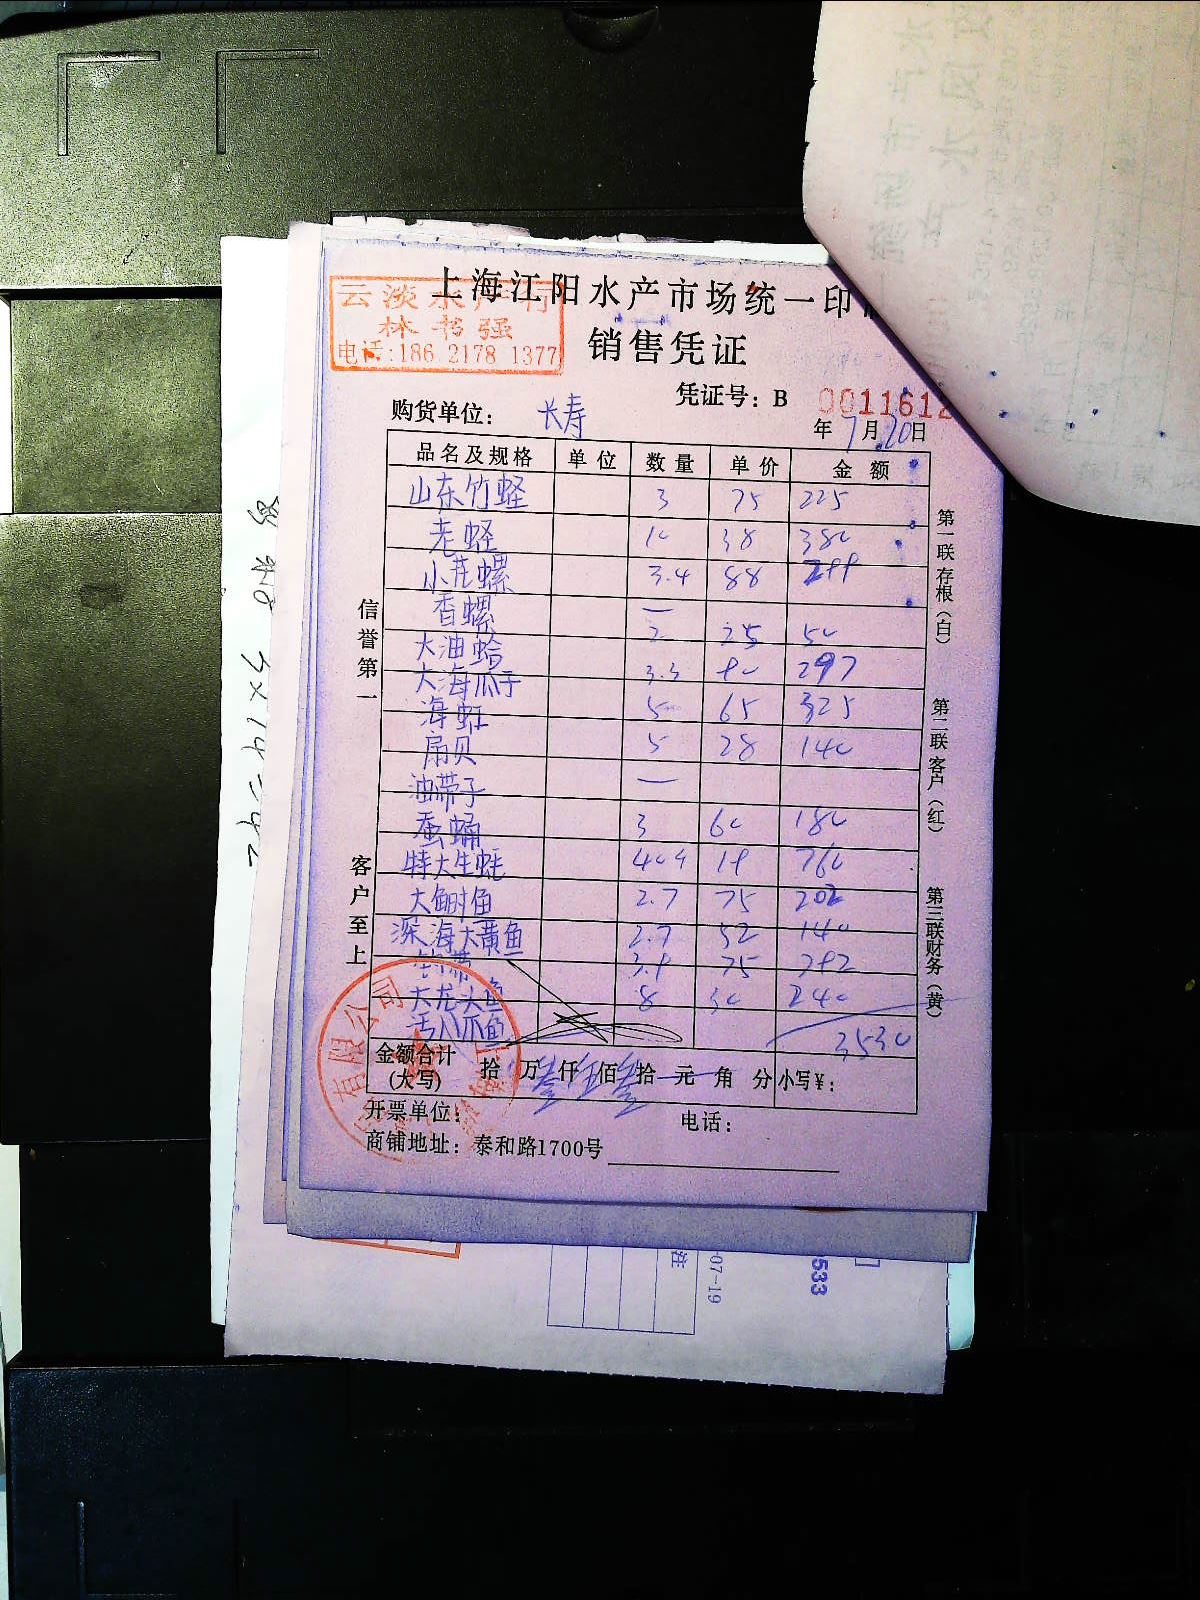 上海江阳水产市场统一印
云淡水产行
林书强
电话:186 2178 1377
销售凭证
凭证号：B 0011612
购货单位： 长寿
年 7月 20日
品名及规格 单位 数量 单价 金额
山东竹蛏 3 75 225
老蛏 10 38 380
小花螺 3.4 88 299
香螺 一
大油蛤 2 25 50
大海瓜子 3.3 90 297
海虹 5 65 325
扇贝 5 28 140
油带子 一
蚕蛹 3 60 180
特大生蚝 40 19 760
大鲥鱼 2.7 75 202
深海大黄鱼 2.7 52 140
钓带 3.9 75 292
大龙头鱼 8 30 240
活八爪鱼
3530
金额合计
(大写) 拾 万叁仟伍佰叁拾 元 角 分 小写¥：
开票单位： 电话：
商铺地址：泰和路1700号
信誉第一
客户至上
第一联存根（白）
第二联客户（红）
第三联财务（黄）
有限公司
-07-19
533
注